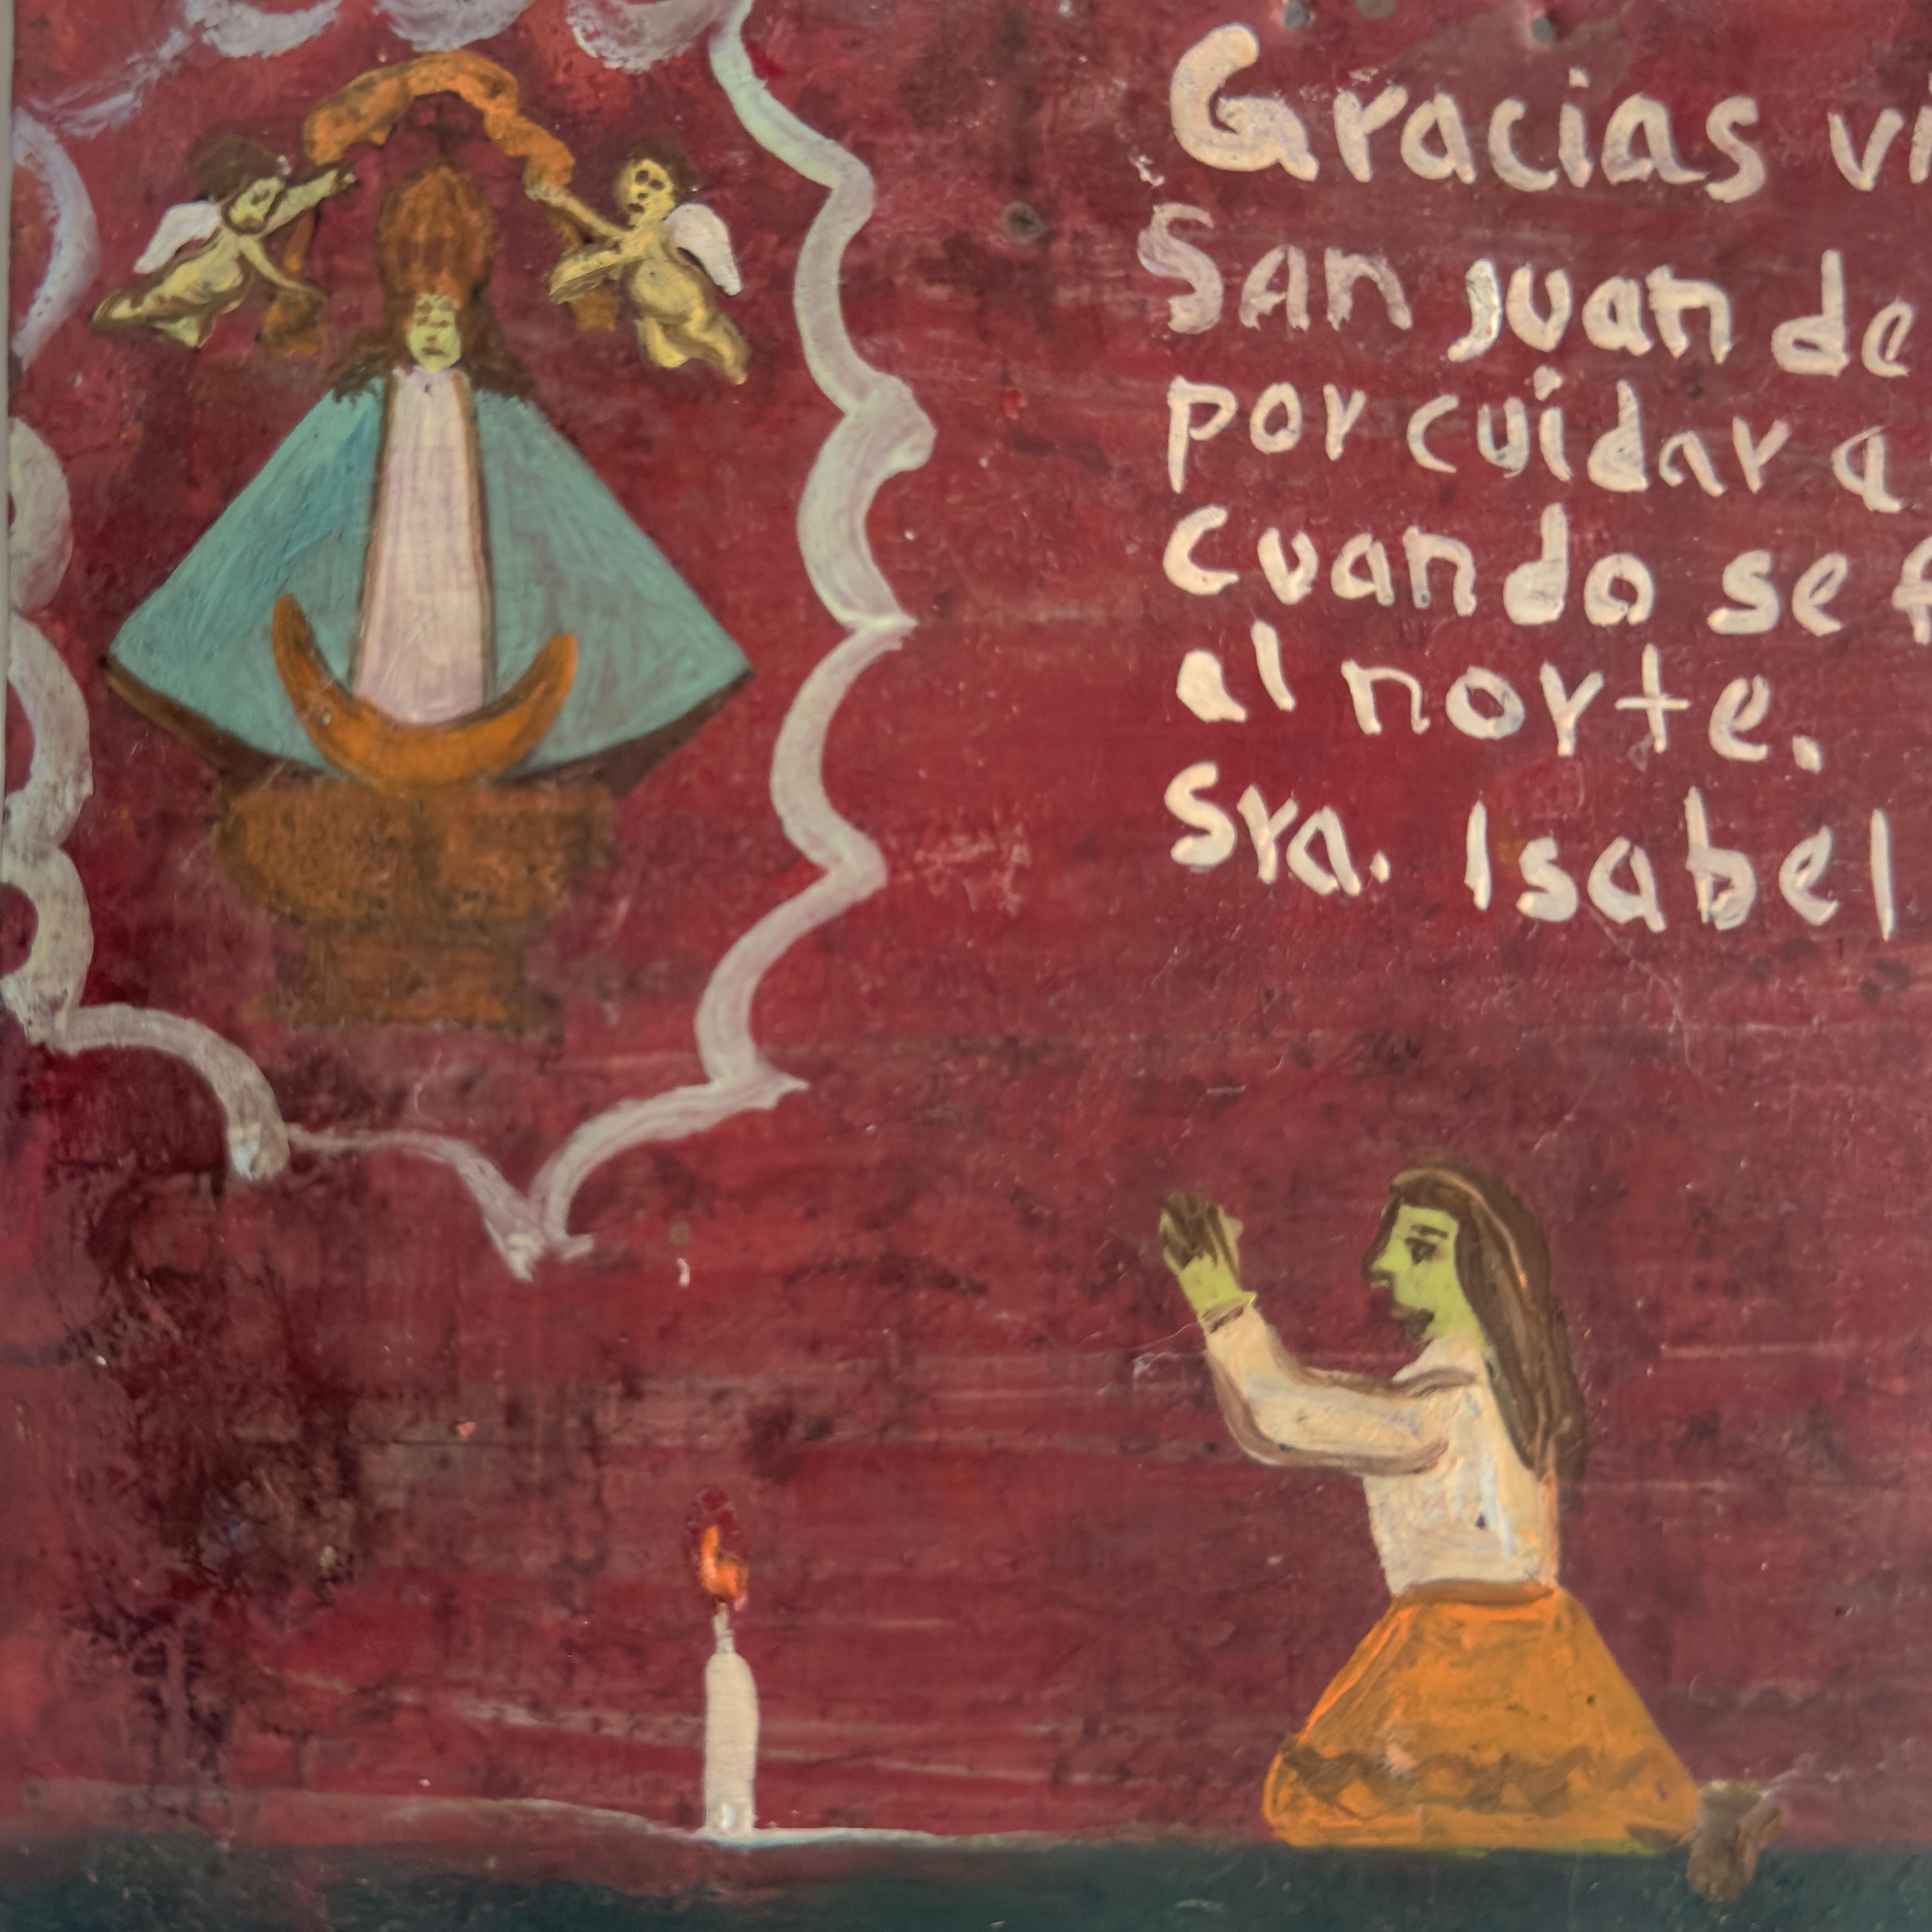 Gracias vi
San Juan de
por cuidar a
cuando se f
al norte.
Sra. Isabel